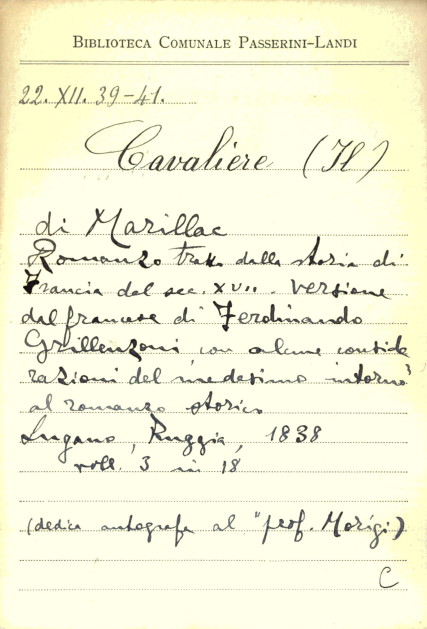 BIBLIOTECA COMUNALE PASSERINI-LANDI
22. XII. 39-41.
Cavaliere (Il)
di Marillac
Romanzo tratto dalla storia di
Francia del sec. XVII. Versione
dal francese di Ferdinando
Grillenzoni, con alcune conside
razioni del medesimo intorno
al romanzo storico
Lugano, Ruggia, 1838
voll. 3 in 18
(dedica autografa al "prof. Morigi)
C